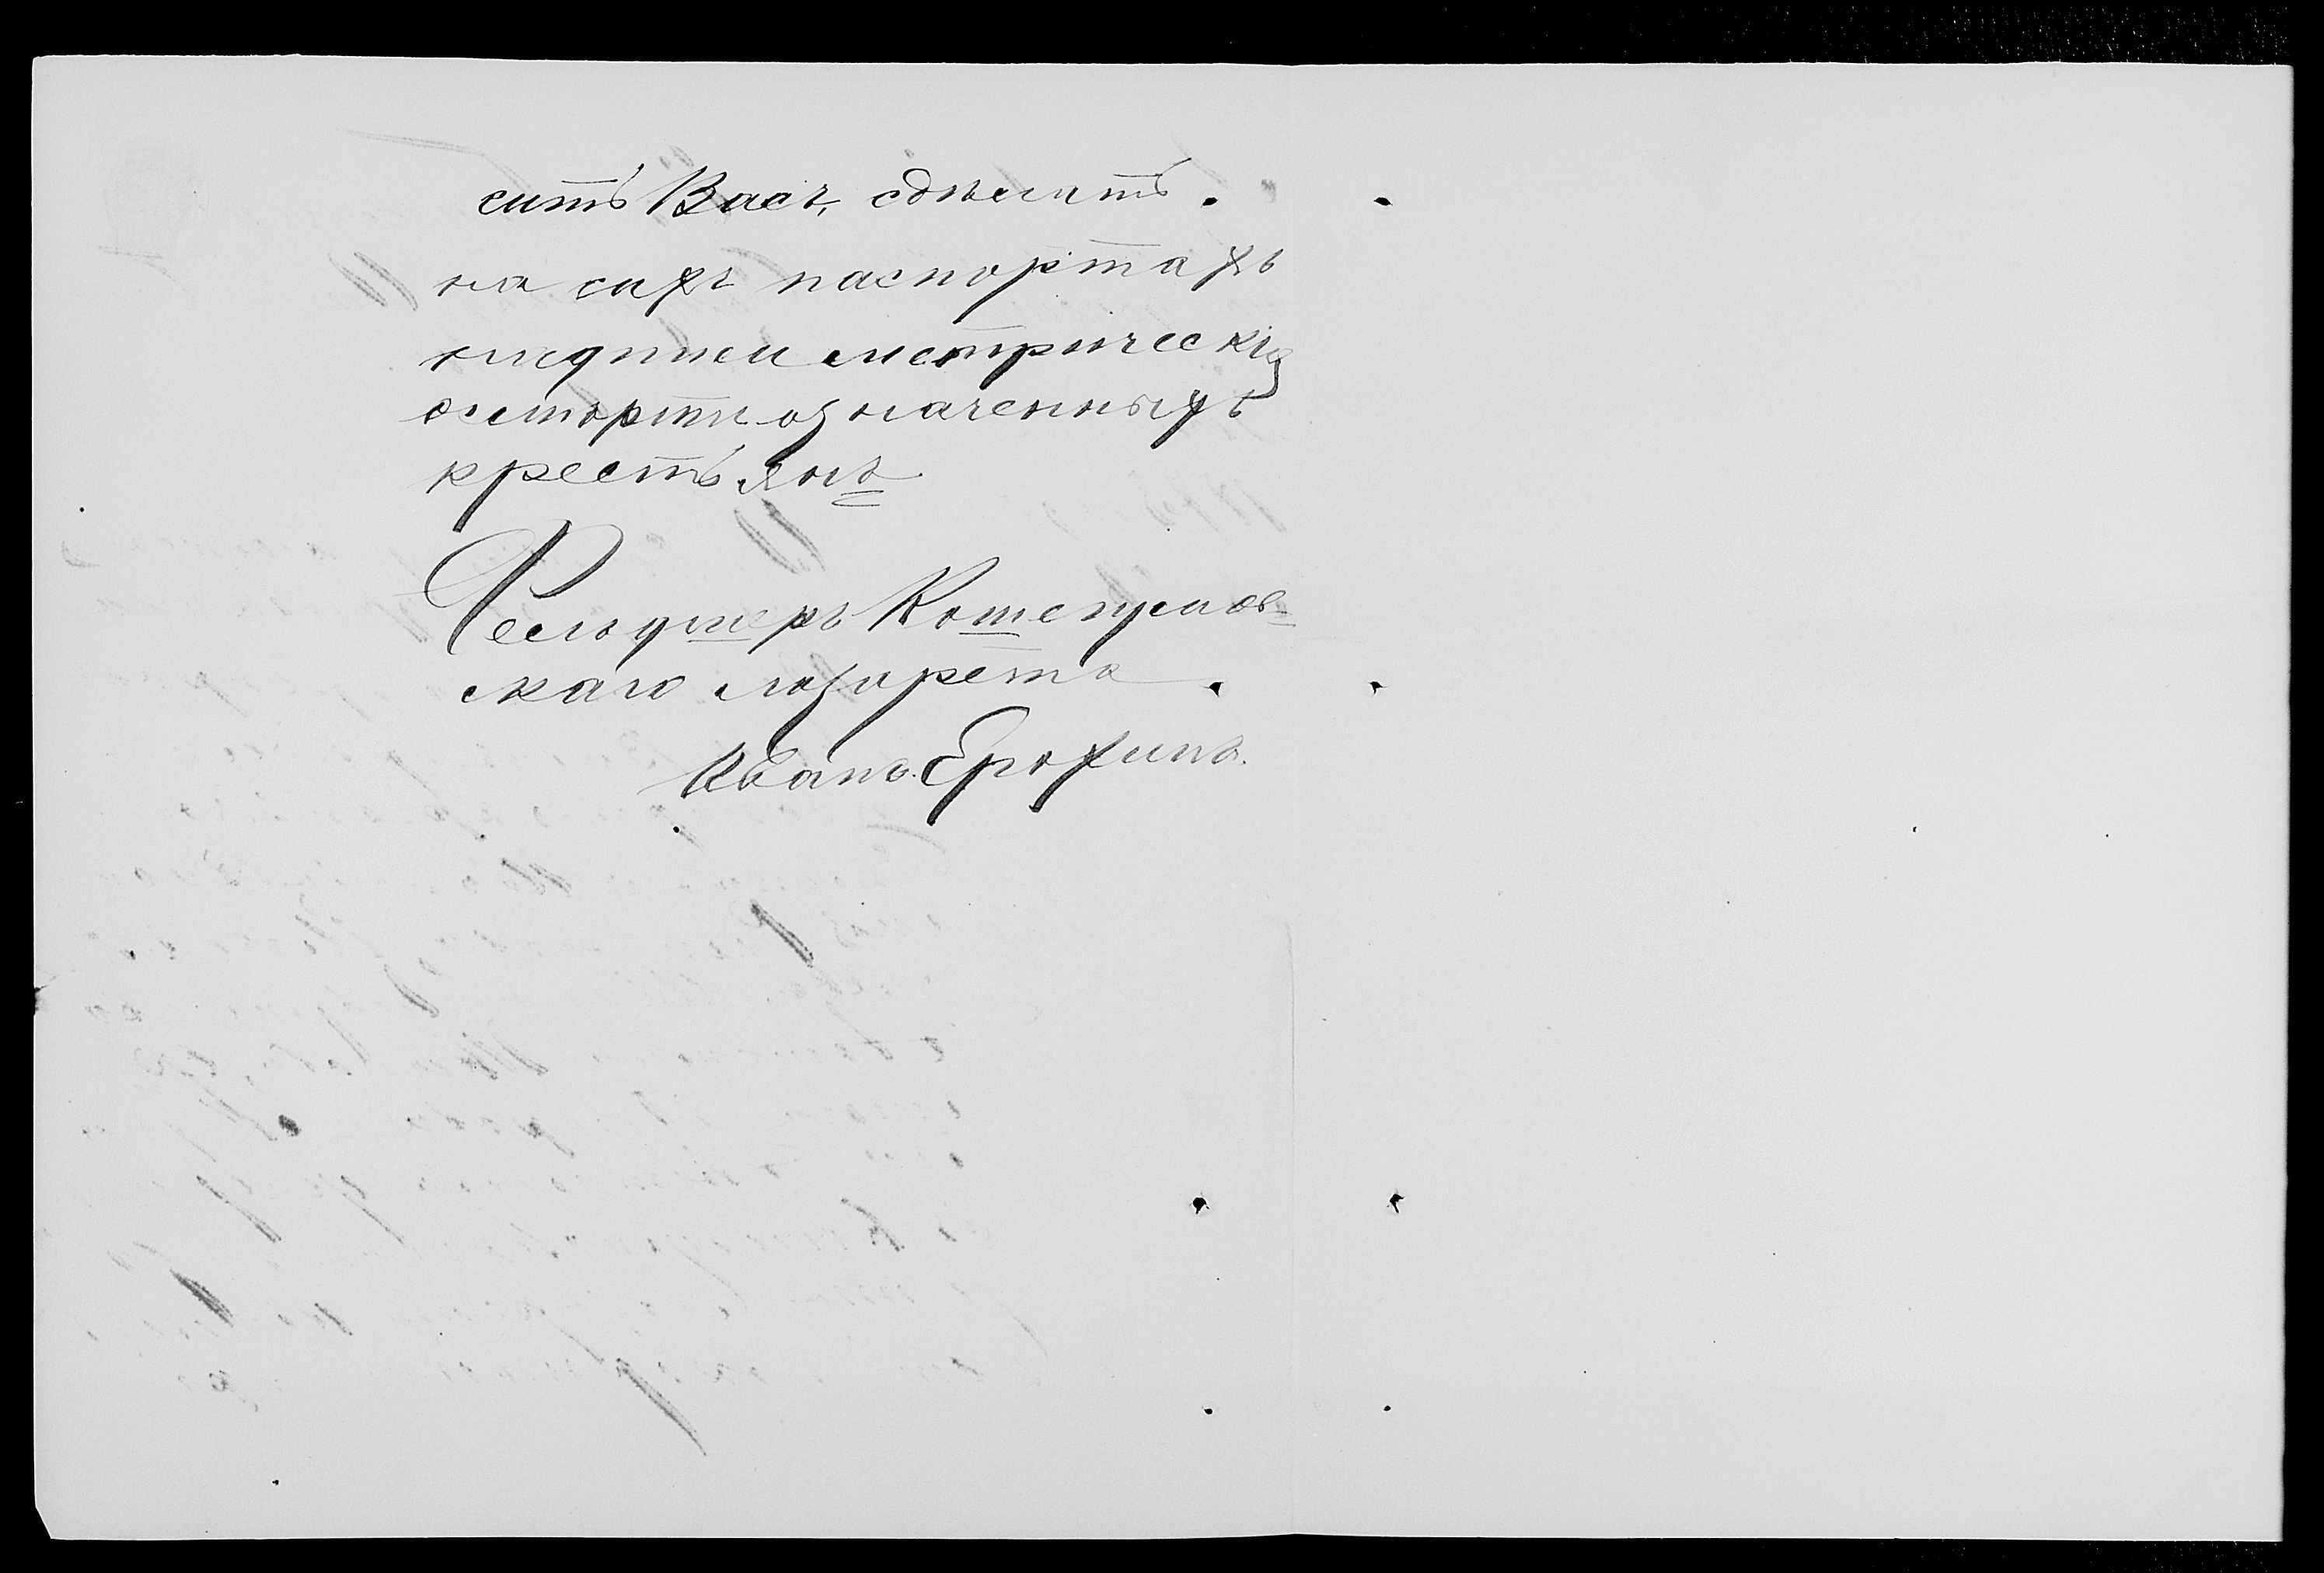 сить Васъ, сдѣлать
на сихъ паспортахъ
надписи метрически
о смерти означенныхъ
крестьянъ
Фельдшеръ Котепуков-
скаго лазарета
Иванъ Ерохинъ.